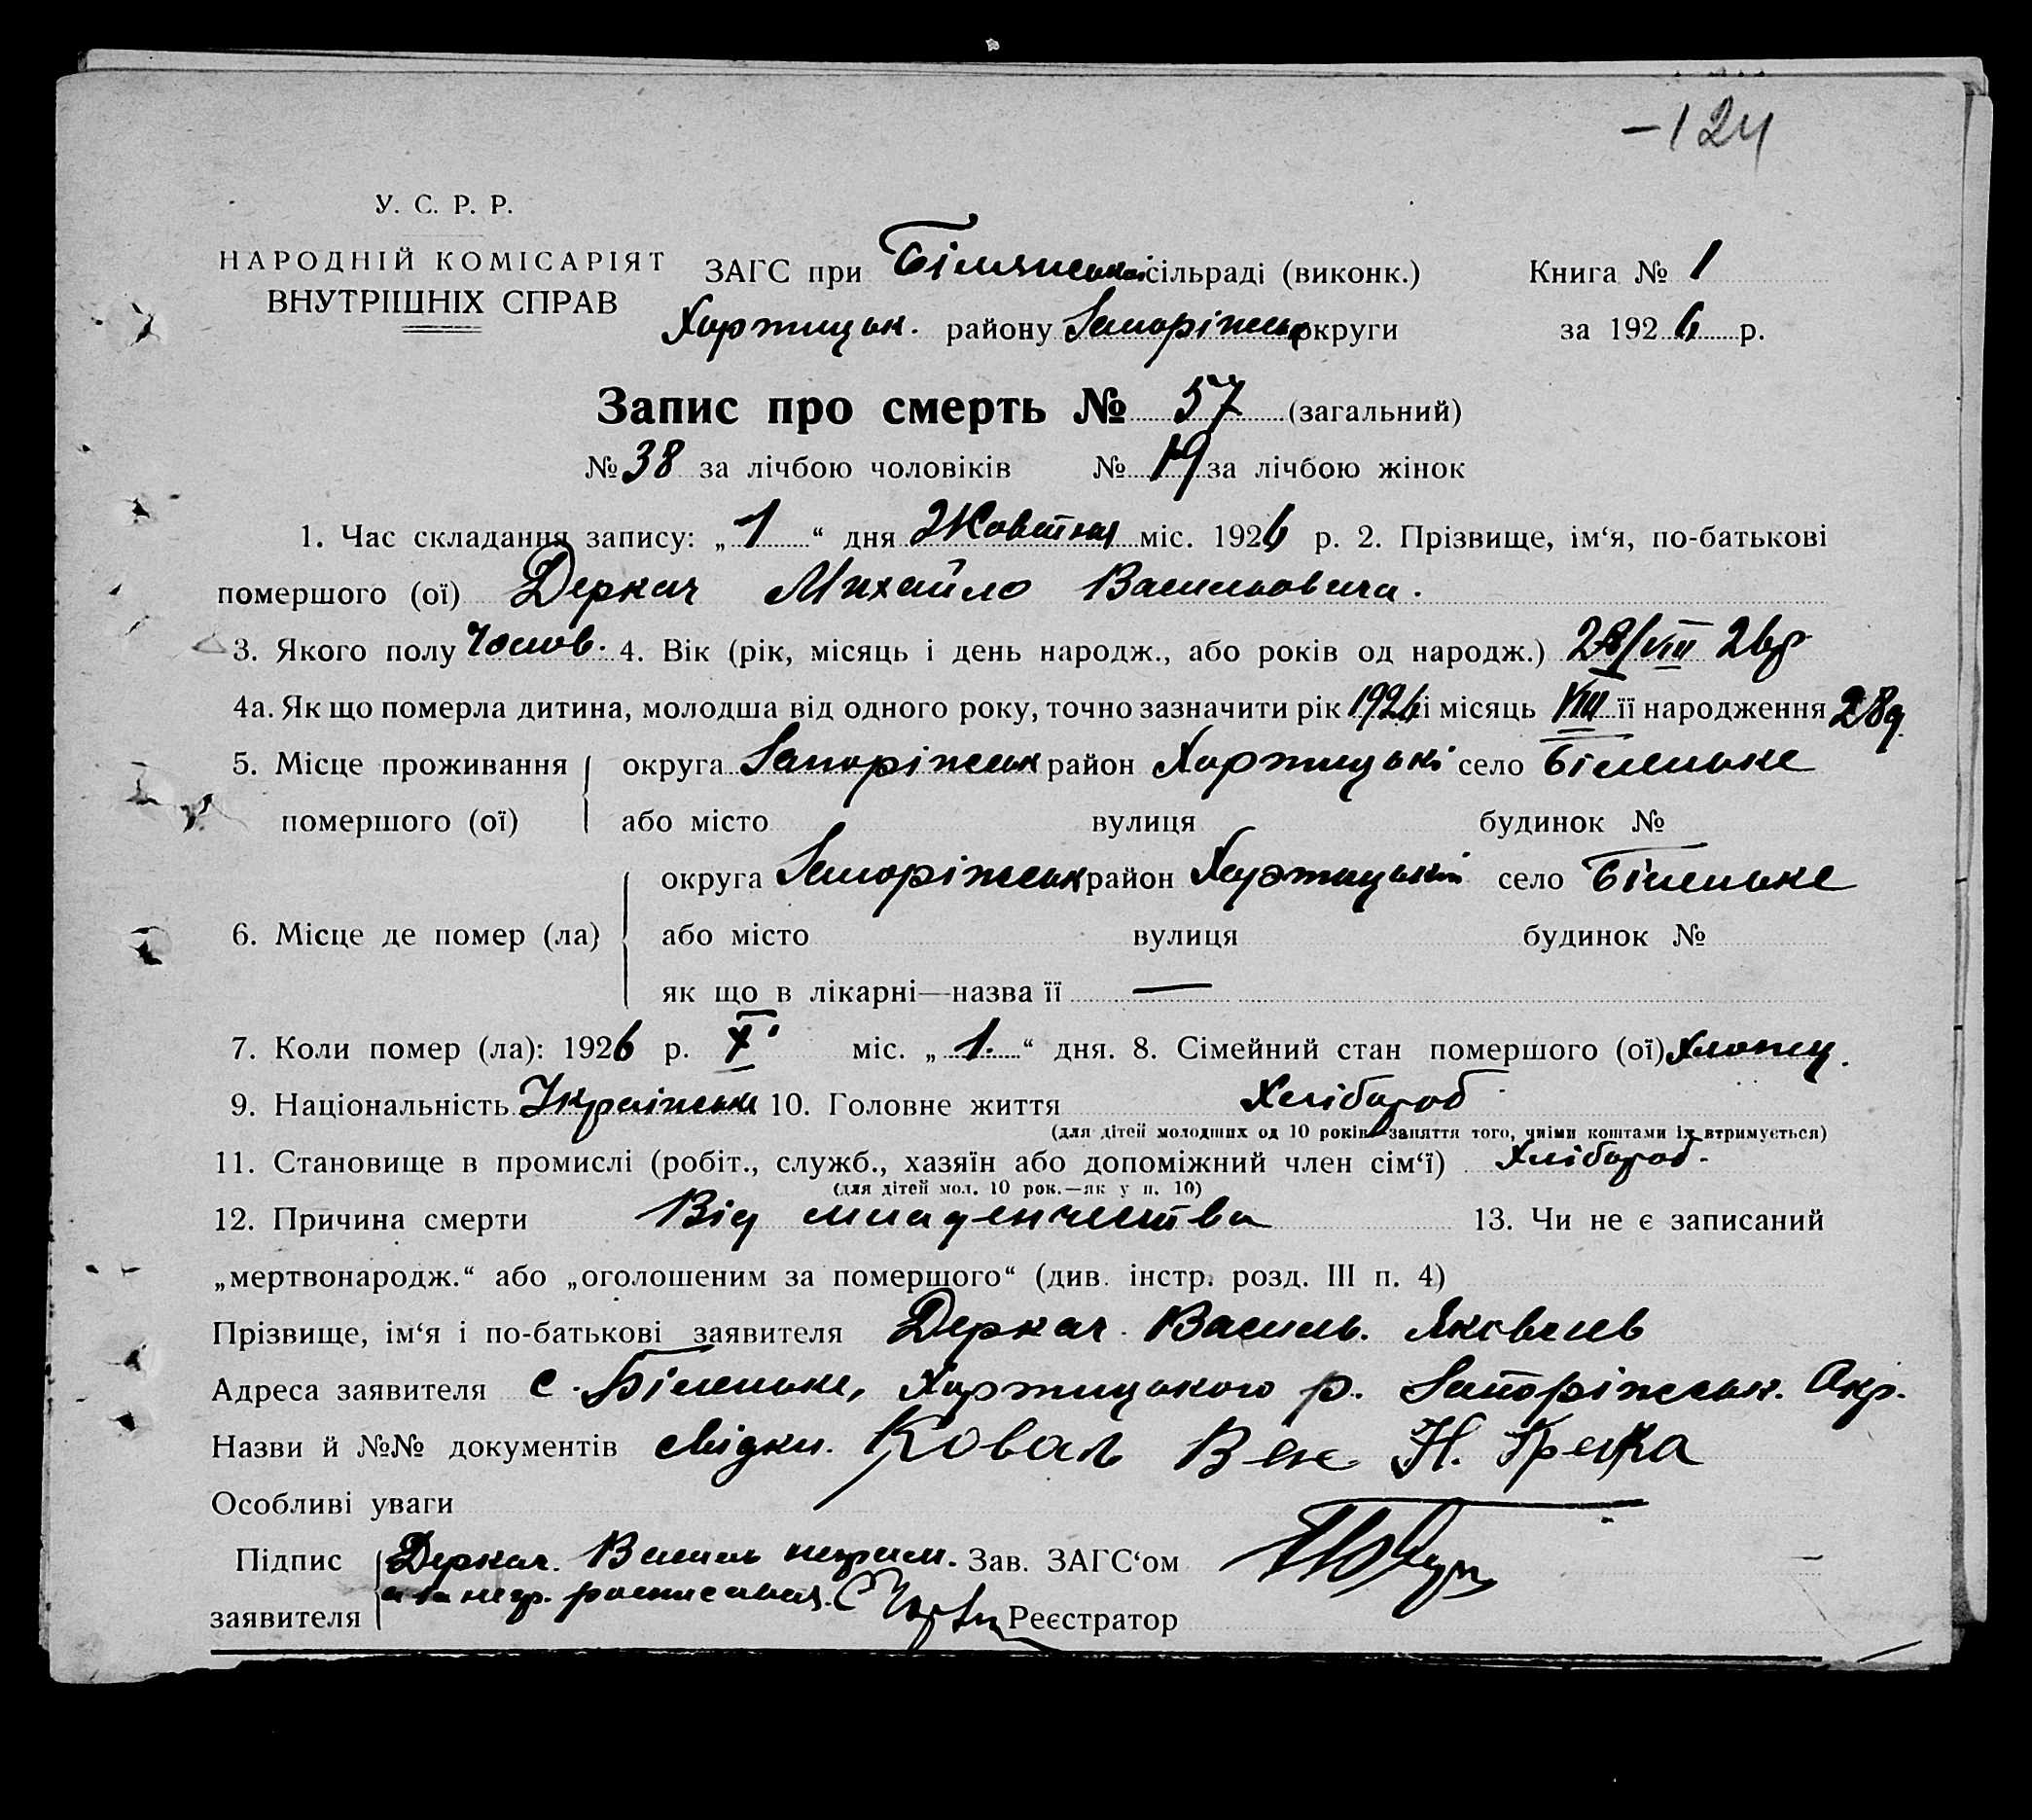 -124
У. С. Р. Р.
НАРОДНІЙ КОМІСАРІЯТ
ВНУТРІШНІХ СПРАВ
ЗАГС при Білянській сільраді (виконк.) Книга № 1
Хортицьк. району Запоріжськ округи за 1926 р.
Запис про смерть № 57 (загальний)
№ 38 за лічбою чоловіків № 19 за лічбою жінок
1. Час складання запису: „1“ дня Жовтня міс. 1926 р. 2. Прізвище, ім‘я, по-батькові
помершого (ої) Деркач Михайло Васильовича.
3. Якого полу Чолов. 4. Вік (рік, місяць і день народж., або років од народж.) 28/VIII 26р
4а. Як що померла дитина, молодша від одного року, точно зазначити рік 1926 і місяць VIII її народження 28д.
5. Місце проживання округа Запоріжськ район Хортицькі село Біленьке
помершого (ої) або місто вулиця будинок №
округа Запоріжськ район Хортицький село Біленьке
6. Місце де помер (ла) або місто вулиця будинок №
як що в лікарні—назва її —
7. Коли помер (ла): 1926 р. X міс. „1.“ дня. 8. Сімейний стан помершого (ої) Хлопец.
9. Національність Українськ 10. Головне життя Хлібороб
(для дітей молодших од 10 років—заняття того, чиїми коштами їх втримується)
11. Становище в промислі (робіт., служб., хазяїн або допоміжний член сім‘ї) Хлібороб.
(для дітей мол. 10 рок.—як у п. 10)
12. Причина смерти Від младенчества 13. Чи не є записаний
„мертвонародж.“ або „оголошеним за помершого“ (див. інстр. розд. III п. 4)
Прізвище, ім‘я і по-батькові заявителя Деркач Василь Яковлев
Адреса заявителя с. Біленьке, Хортицького р. Запоріжськ. Окр.
Назви й №№ документів свідки. Коваль Н.
Особливі уваги
Підпис Деркач. Василь неграм. Зав. ЗАГС‘ом
а за негр. росписався.
заявителя Реєстратор